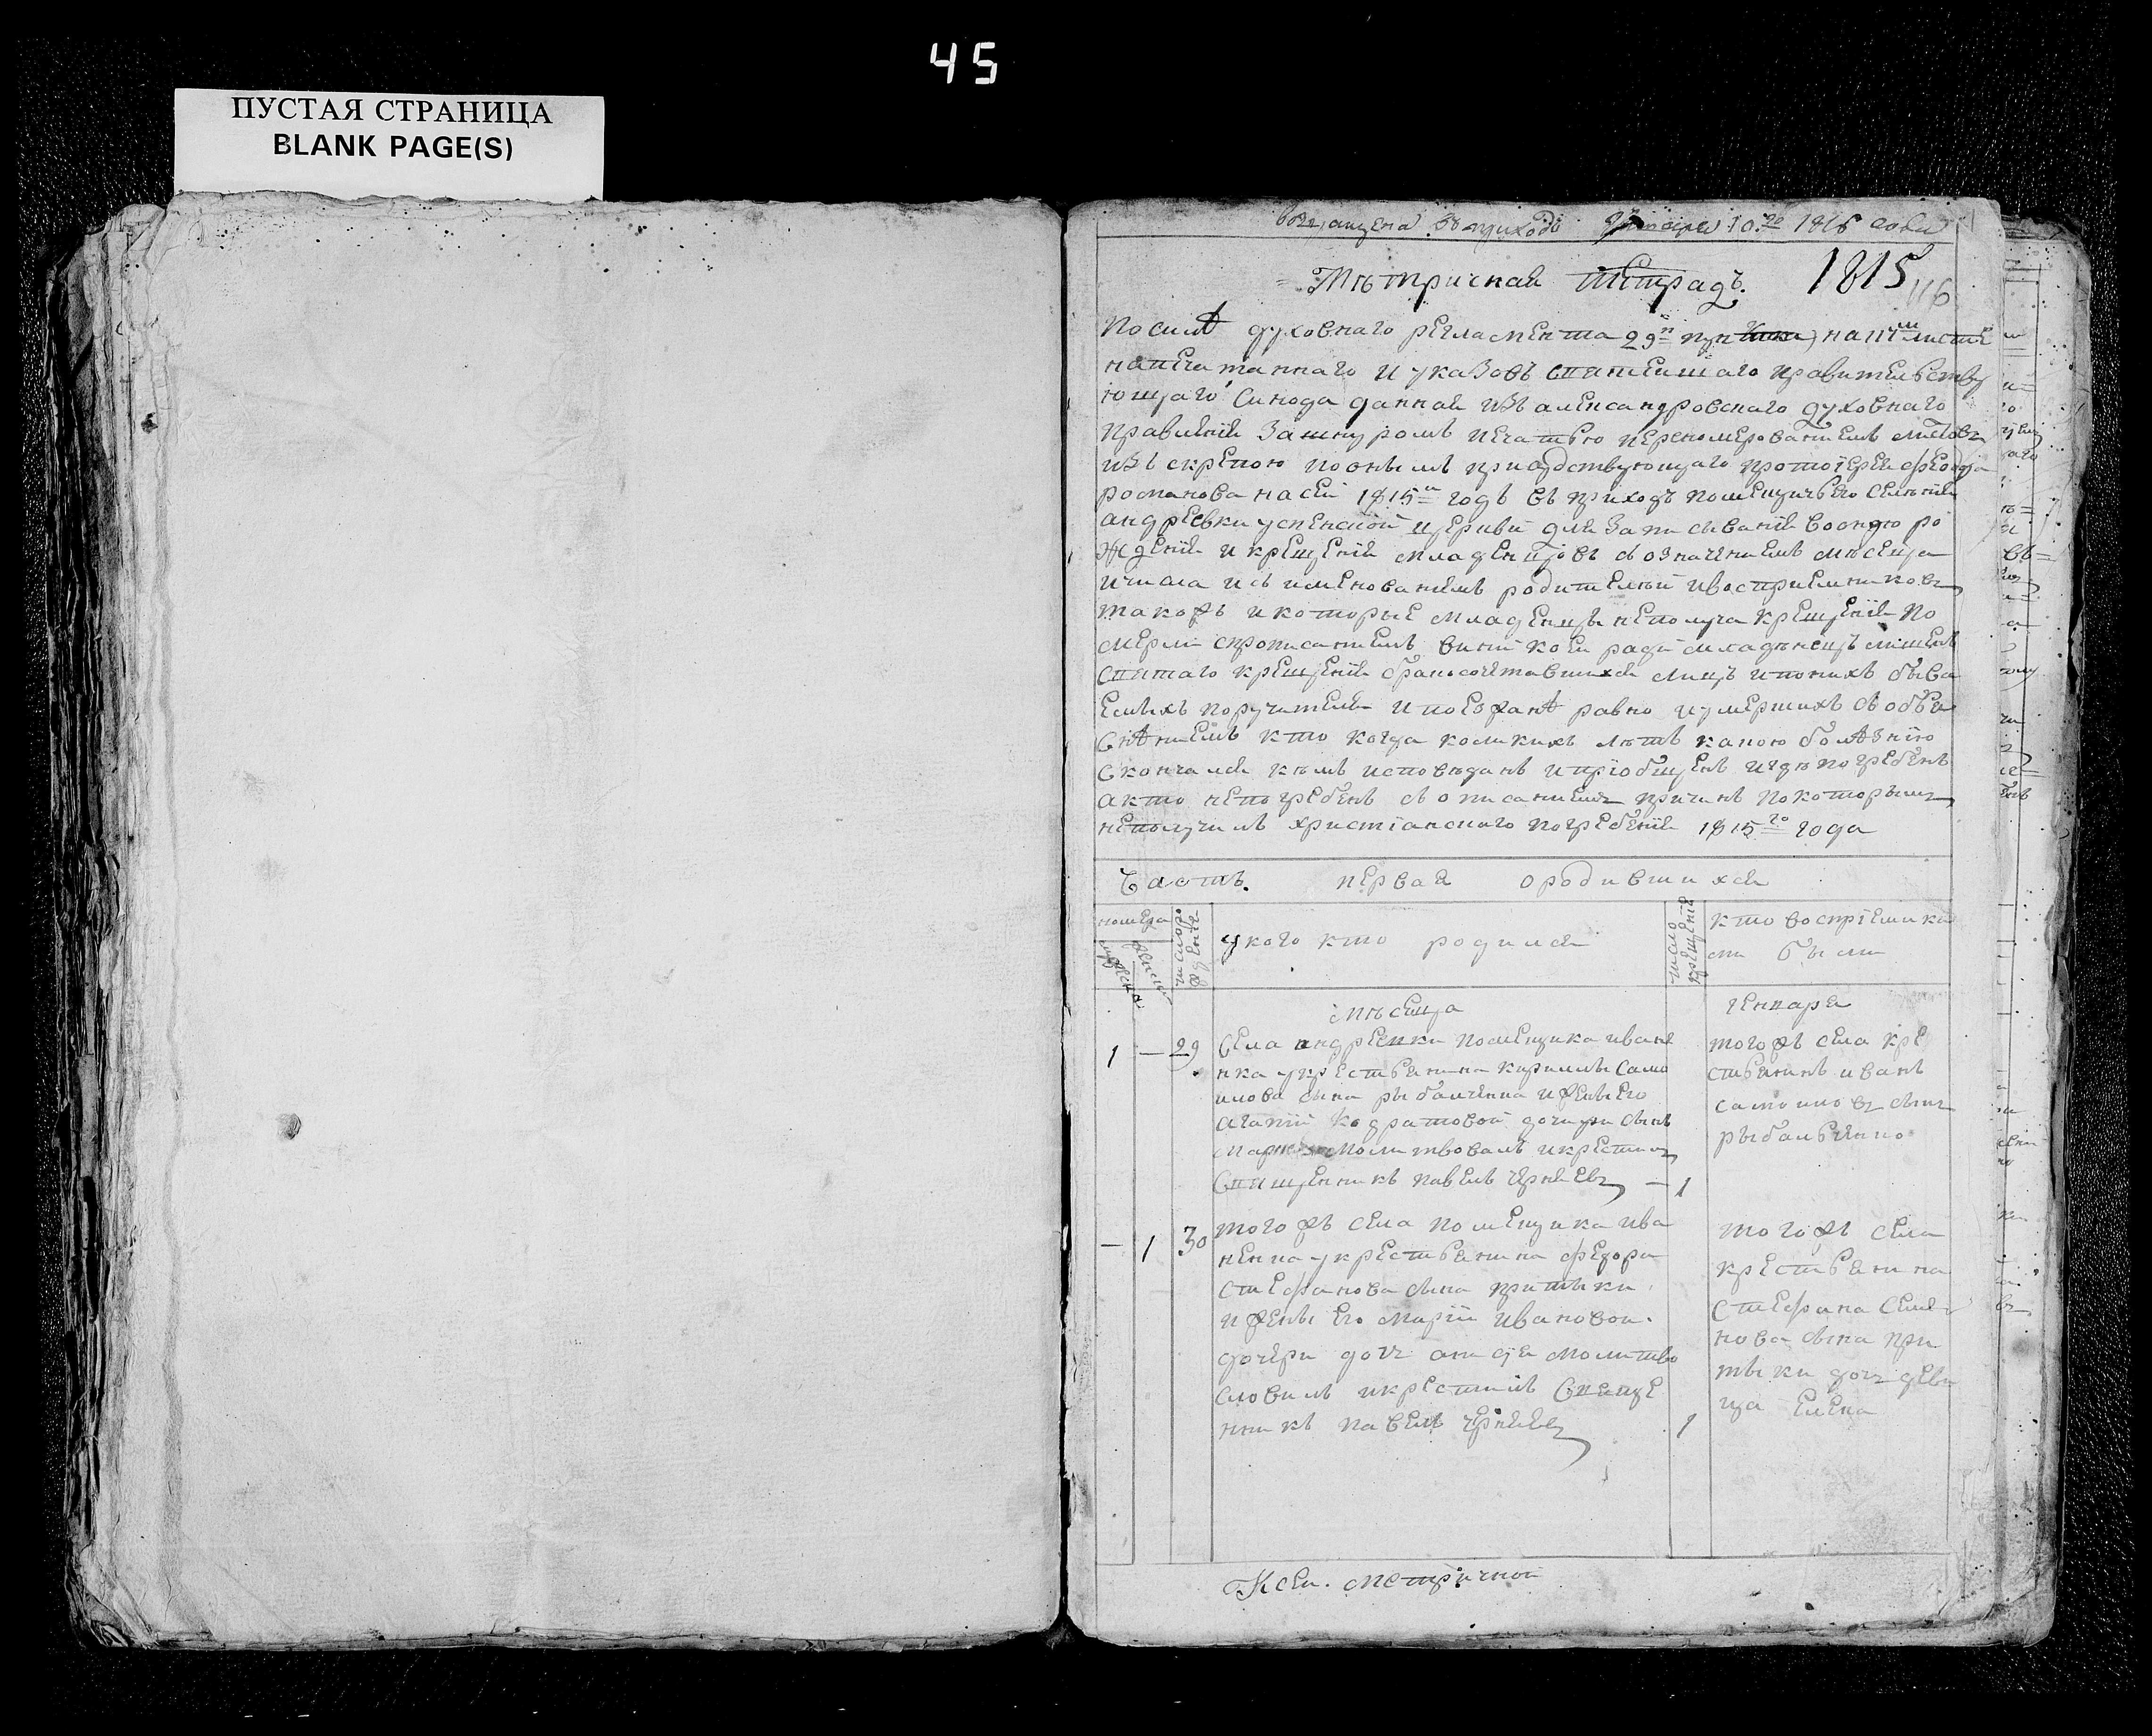 45
ПУСТАЯ СТРАНИЦА
BLANK PAGE(S)
10го 1816 года
Мѣтричная тетрадь. 1815
116
По силѣ духовнаго регламента 29п на 117м листе
напечатаннаго и указовъ святейшаго правительству
ющаго Синода данная изъ александровскаго духовнаго
правления за шнуромъ печатью перенумерованиемъ листовъ
изъ скрепою по онымъ присудствующаго протоиерея Феодора
романова на сей 1815й годъ въ приходъ помещичьего селения
андреевки успенской церкви для записывания во оную ро
ждения и крещения младенцовъ съ означениемъ мѣсеца
и числа и съ именованиемъ родителей и восприемниковъ
такожъ и которые младенцы неполуча крещения по
мерли спрописаниемъ вини коей ради младѣнецъ лишенъ
святаго крещения бракосочетавшихся лицъ и по нихъ быва
емыхъ поручителей и поезжанъ равно и умершихъ съ объя
снѣниемъ кто когда коликихъ лѣтъ какою болѣзнию
скончался кемъ исповѣданъ и приобщенъ и гдѣ погребенъ
а кто непогребенъ съ описаниемъ причинъ по которымъ
неполучилъ христианскаго погребения 1815го года
Часть. первая о родившихся
номера
число рождения
у кого кто родился
число крещения
кто восприемника
ми были
мужеска
женска
мѣсеца
генваря
1 — 29 Села андреевки помещика иване
нка у крестьянина кирилла само
илова сына рыбалченка и жены его
агапии кодратовой дочери сынъ
молитвовалъ и крестилъ
Священникъ павелъ — 1
тогожъ села кре
стьянинъ иванъ
самоиловъ сынъ
рыбальченко
— 1 30 тогожъ села помещика ива
ненка у крестьянина федора
стефанова сына притыки
и жены его марии ивановой
дочери дочь молитво
словилъ и крестилъ Священ
никъ павелъ 1
тогожъ села
крестьянина
стефана семе
нова сына при
тыки дочь деви
ца елена
К сей метричной